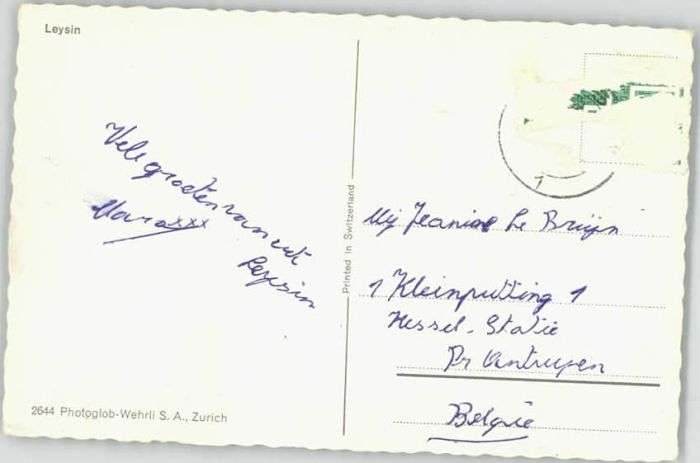 Leysin
Vele groeten vanuit
Leysin
Mara xxx
Printed in Switzerland
Mij Jeanine Le Bruijn
1 Kleinputting 1
Hessel-Statie
Pr Antwerpen
België
2644 Photoglob-Wehrli S. A., Zurich